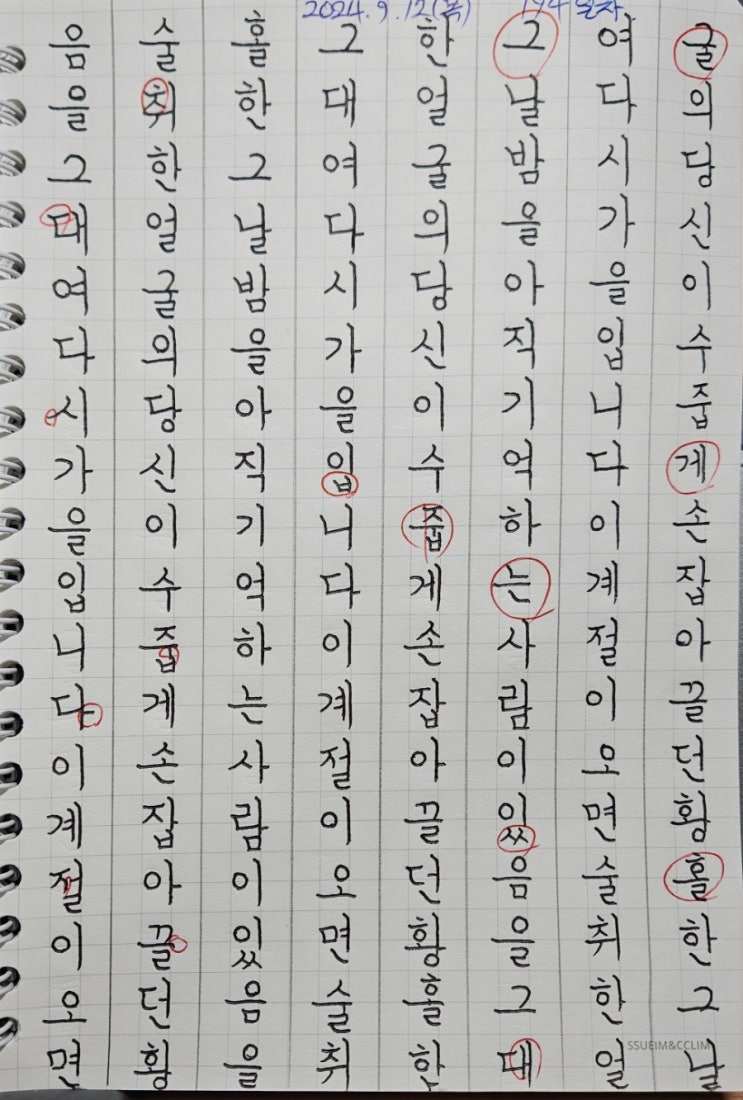 2024.9.12(목) 194일차
음을그대여다시가을입니다이계절이오면
술취한얼굴의당신이수줍게손잡아끌던황
홀한그날밤을아직기억하는사람이있음을
그대여다시가을입니다이계절이오면술취
한얼굴의당신이수줍게손잡아끌던황홀한
그날밤을아직기억하는사람이있음을그대
여다시가을입니다이계절이오면술취한얼
굴의당신이수줍게손잡아끌던황홀한그날
SSUEIM&CCLIM